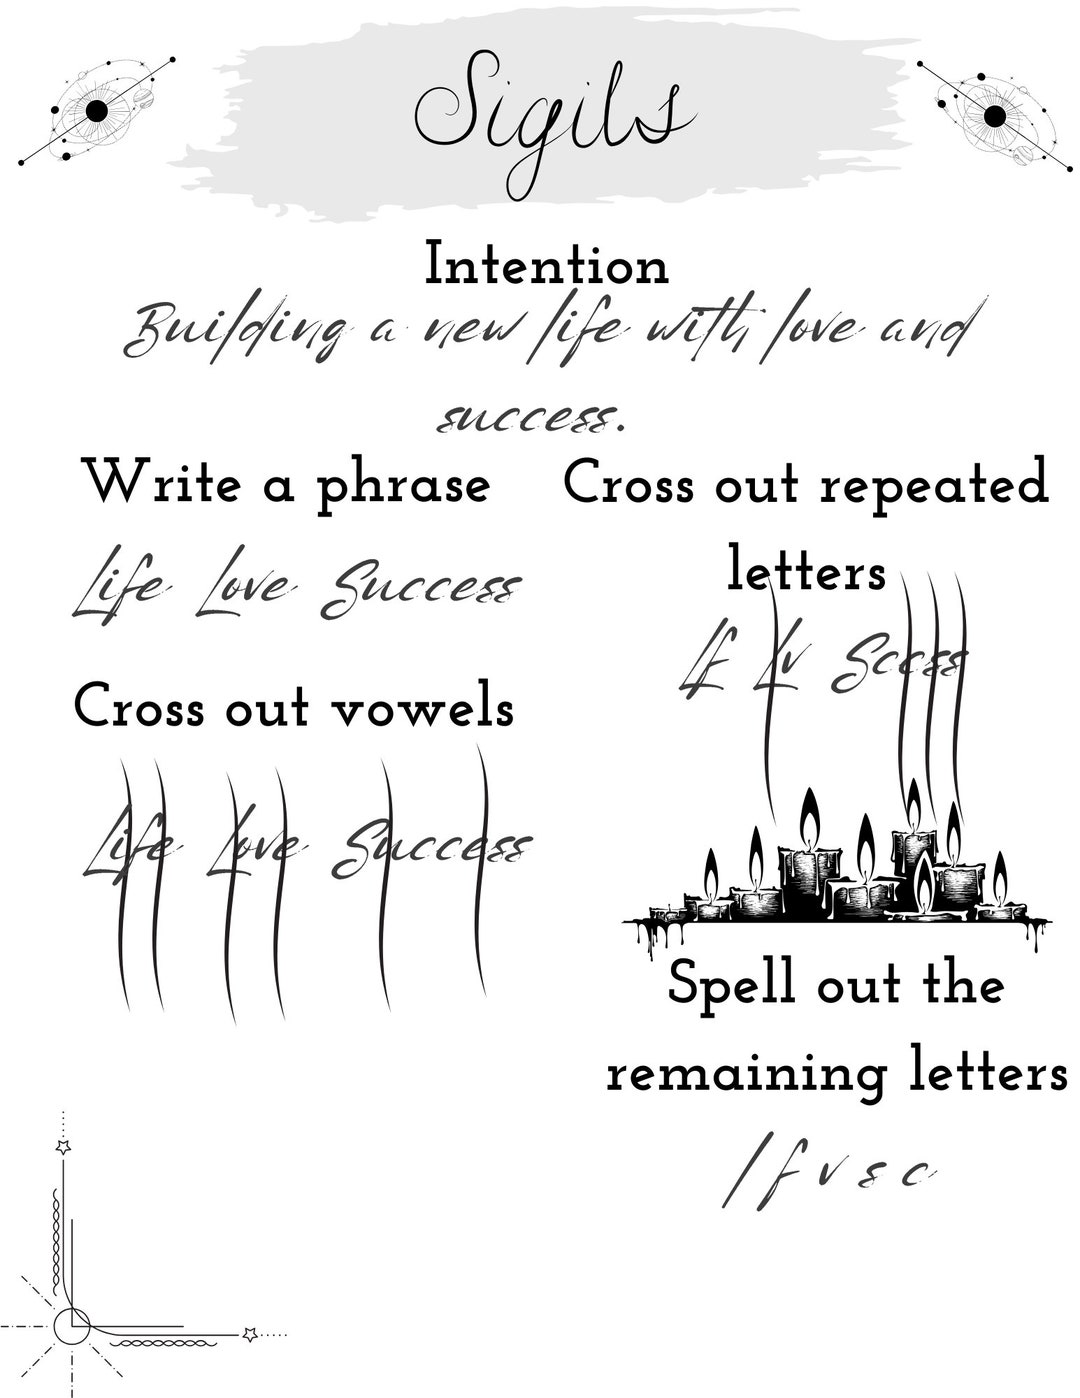 Sigils
Intention
Building a new life with love and
success.
Write a phrase
Life Love Success
Cross out vowels
Life Love Success
Cross out repeated
letters
Lf Lv Sccss
Spell out the
remaining letters
l f v s c